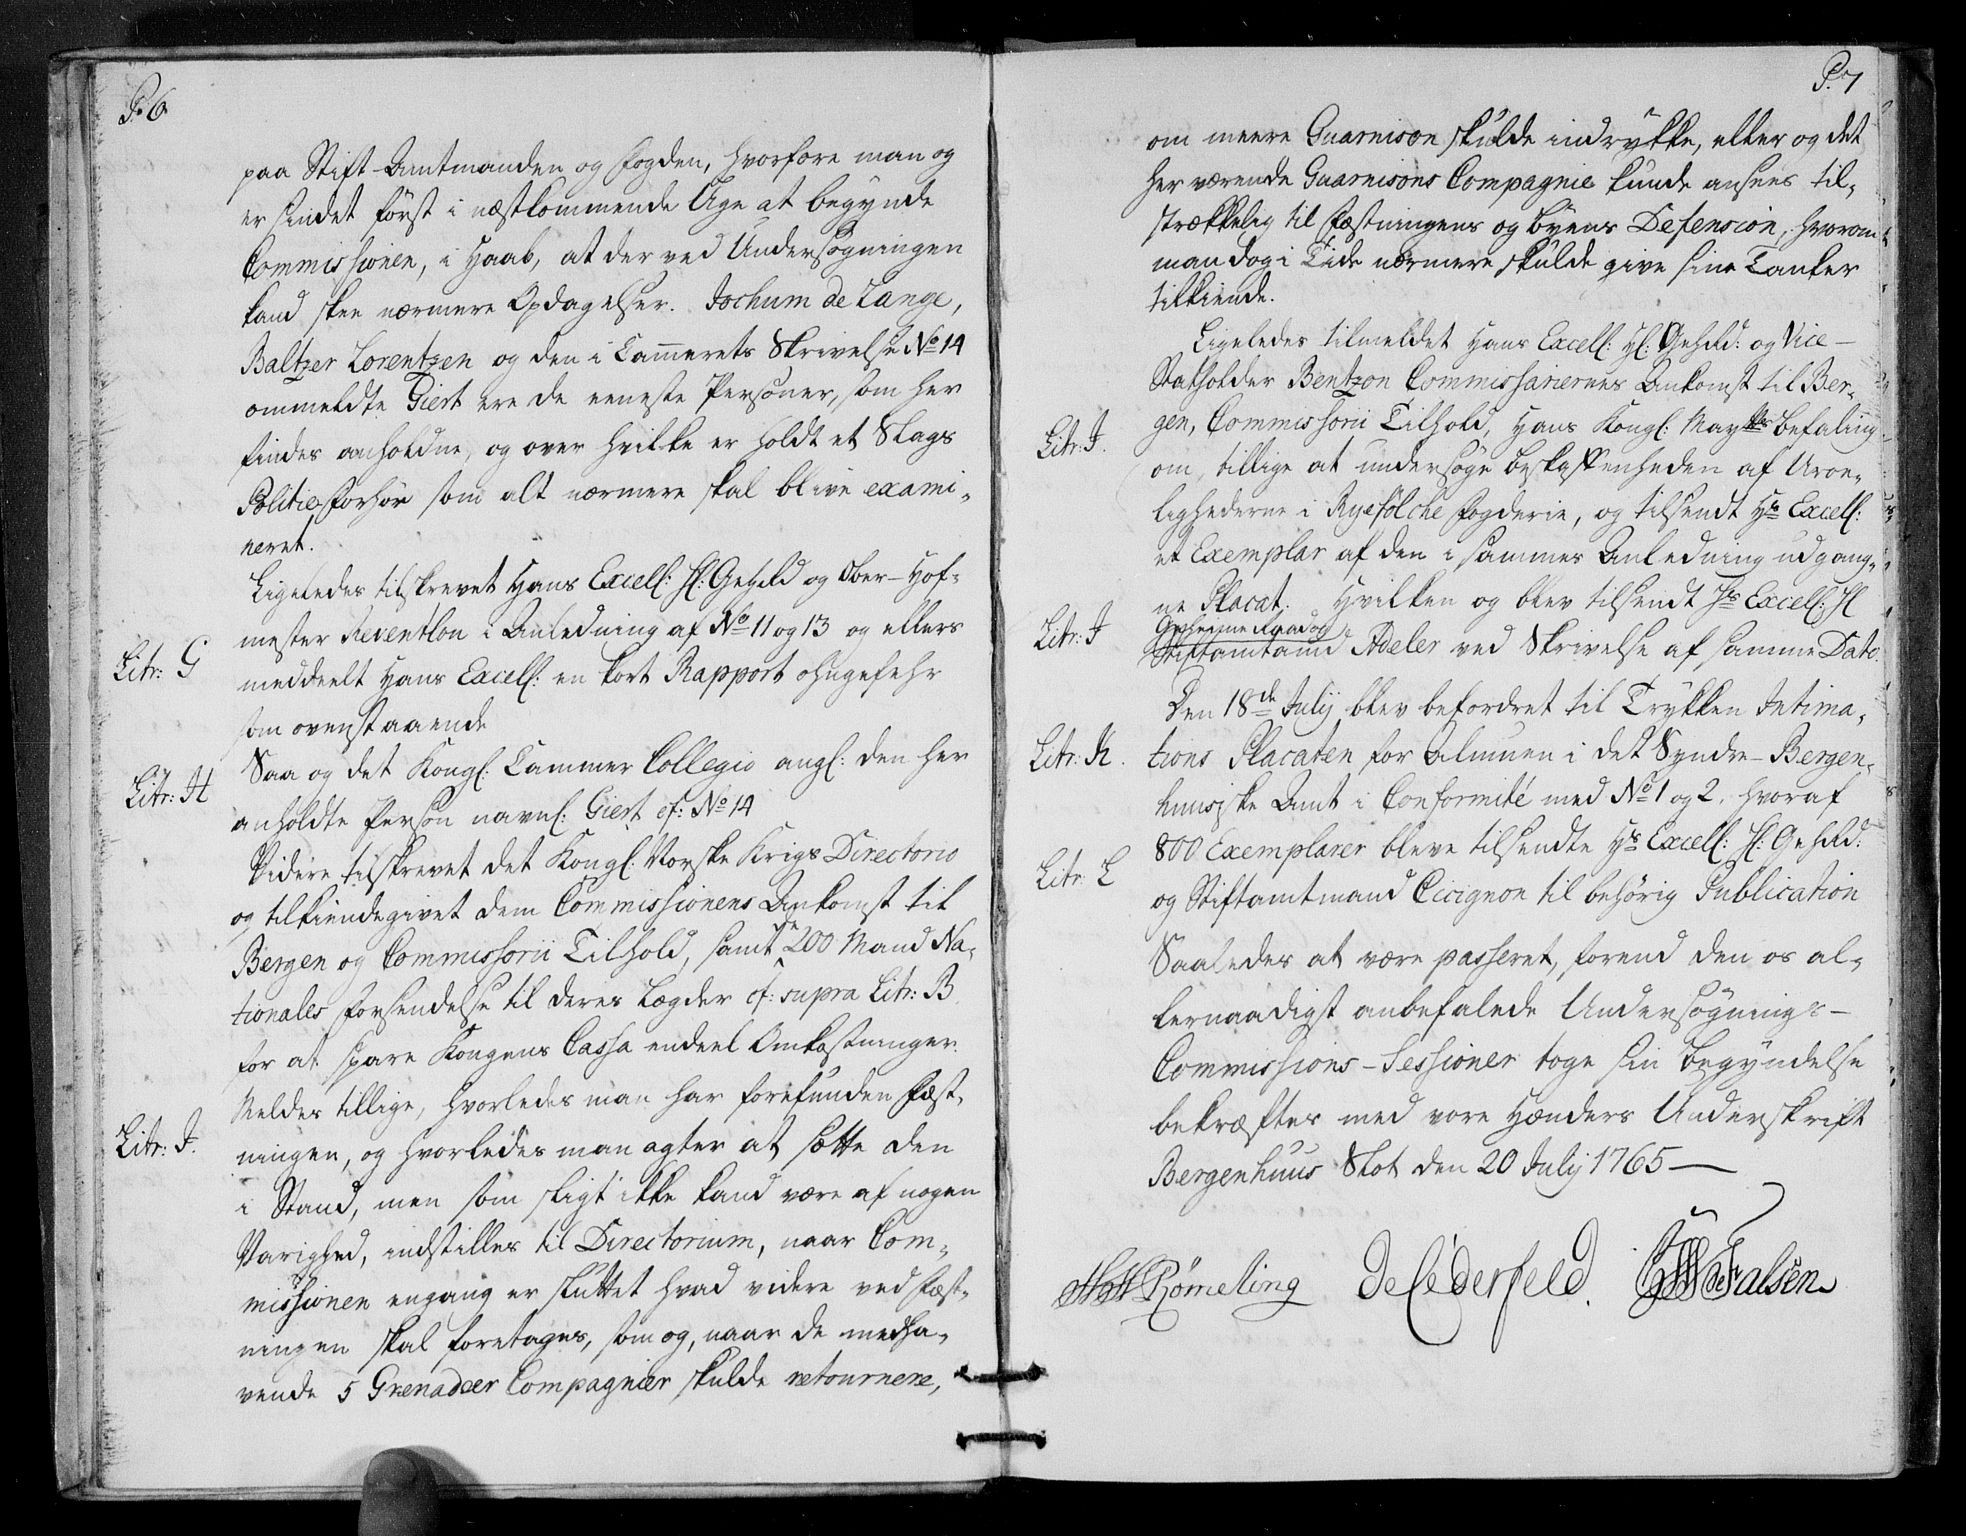 P. 6.
paa Stift-Amtmanden og Fogden, hvorfore man og
er sindet först i næstkommende Uge at begynde
Commissionen, i Haab, at der ved Undersögningen
kand skee nærmere Opdagelser. Jochum de Lange,
Baltzer Lorentzen og den i Cammerets Skrivelse No 14
ommeldte Giert ere de eeneste Personer, som her
findes anholdne, og over hvilke er holdt et Slags
Politieforhör som alt nærmere skal blive exami-
neret.
Ligeledes tilskrevet Hans Excell: Hl: Gehrd og Ober-Hof-
mester Reventlou i Anledning af No 11 og 13 og ellers
Litr: G
meddeelt Hans Excell: en kort Rapport ohngefehr
som ovenstaaende
Saa og det Kongl: Cammer Collegio angl: den her
Litr: H
anholdte Person navnl: Giert cf: No 14
Videre tilskrevet det Kongl: Norske Krigs Directorio
og tilkiendegivet dem Commissionens Ankomst til
Bergen og Commissorii Tilhold, samt 200 Mand Na-
tionales Forsendelse til deres Lægder cf: supra Litr: B.
for at spare Kongens Cassa endeel Omkostninger.
Meldes tillige, hvorledes man har forefunden Fæst-
Litr: I.
ningen, og hvorledes man agter at sætte den
i Stand, men som sligt ikke kand være af nogen
Varighed, indstilles til Directorium, naar Com-
missionen engang er sluttet hvad videre ved Fæst-
ningen skal foretages, som og, naar de medha-
vende 5 Grenadeer Compagnier skulde retournere,
P. 7
om meere Guarnison skulde indrykke, eller og det
her værende Guarnisons Compagnie kunde ansees til-
strækkelig til Fæstningens og Byens Defension, hvorom
man dog i Tide nærmere skulde give sine Tanker
tilkiende.
Ligeledes tilmeldet Hans Excell: Hl: Gehrd: og Vice-
Statholder Bentzon Commissariernes Ankomst til Ber-
Litr: I.
gen, Commissorii Tilhold, Hans Kongl: Mayts Befaling
om, tillige at undersöge Beskaffenheden af Uroe-
lighederne i Ryefölche Fogderie, og tilsendt Hs Excell:
et Exemplar af den i sammes Anledning udgang-
ne Placat. Hvilken og blev tilsendt Hs Excell: Hl
Litr: I
Geheime Raad og
Stiftamtmand Adeler ved Skrivelse af samme Dato.
Den 18de July blev befordret til Trykken Intima-
Litr: K.
tions Placaten for Almuen i det Syndre-Bergen-
huusiske Amt i Conformité med No 1 og 2. hvoraf
800 Exemplarer bleve tilsendte Hs Excell: Hl: Gehrd:
Litr: L
og Stiftamtmand Cicignon til behörig Publication
Saaledes at være passeret, forend den os al-
lernaadigst anbefalede Undersögnings-
Commissions-Sessioner toge sin Begyndelse
bekræftes med vore Hænders Underskrift
Bergenhuus Slot den 20 July 1765
Römeling de Cederfeld. de Falsen